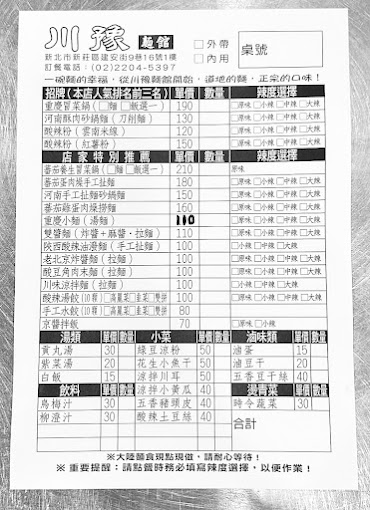 川豫 麵館
□外帶
□內用
桌號
新北市新莊區建安街9巷16號1樓
訂餐電話：(02)2204-5397
一碗麵的幸福，從川豫麵館開始，道地的麵，正宗的口味！
招牌(本店人氣排名前三名) 單價 數量 辣度選擇
重慶冒菜鍋(□麵□飯選一) 190 □原味 □小辣 □中辣 □大辣
河南酥肉砂鍋麵(刀削麵) 130 □原味 □小辣 □中辣 □大辣
酸辣粉(雲南米線) 120 □原味 □小辣 □中辣 □大辣
酸辣粉(紅薯粉) 150 □原味 □小辣 □中辣 □大辣
店家特別推薦 單價 數量 辣度選擇
蕃茄養生冒菜鍋(□麵□飯選一) 210 原味
蕃茄蛋肉燥手工扯麵 180 □原味 □小辣 □中辣 □大辣
河南手工扯麵砂鍋麵 150 □原味 □小辣 □中辣 □大辣
蕃茄雞蛋肉燥撈麵 160 □原味 □小辣 □中辣 □大辣
重慶小麵(湯麵) 110 □原味 □小辣 □中辣 □大辣
雙醬麵(炸醬+麻醬，拉麵) 110 □原味 □小辣 □中辣 □大辣
陝西酸辣油潑麵(手工扯麵) 100 □小辣 □中辣 □大辣
老北京炸醬麵(拉麵) 100 □原味 □小辣 □中辣 □大辣
酸豆角肉末麵(拉麵) 100 □原味 □小辣 □中辣 □大辣
川味涼拌麵(拉麵) 100 □小辣 □中辣 □大辣
酸辣湯餃(10顆)□高麗菜□韭菜□雙拼 100 □小辣 □中辣 □大辣
手工水餃(10顆)□高麗菜□韭菜□雙拼 80
京醬拌飯 70 □原味 □小辣
湯類 單價 數量 小菜 單價 數量 滷味類 單價 數量
貢丸湯 30 綠豆涼粉 50 滷蛋 15
紫菜湯 20 花生小魚干 50 滷豆干 20
白飯 15 涼拌川耳 50 五香豆干絲 40
飲料 單價 數量 涼拌小黃瓜 40 單價 數量
烏梅汁 30 五香豬頭皮 40 時令蔬菜 30
柳澄汁 30 酸辣土豆絲 40 合計
※大陸麵食現點現做，請耐心等待！
※重要提醒：請點餐時務必填寫辣度選擇，以便作業！